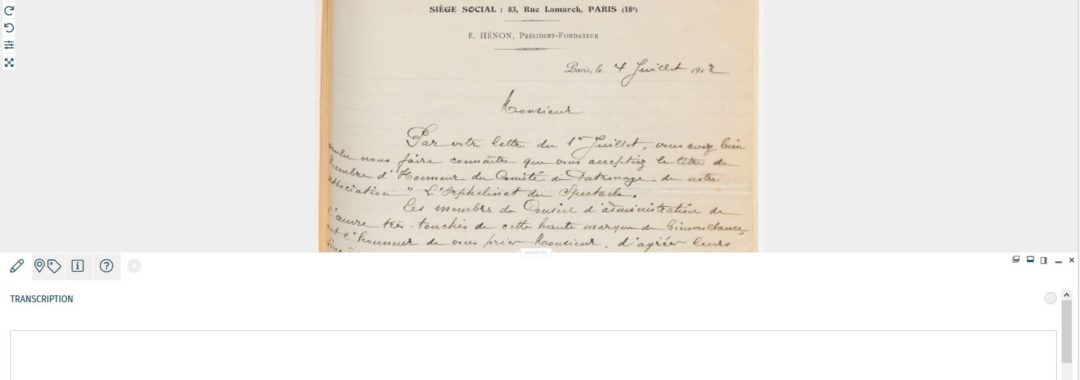 SIÈGE SOCIAL : 53, Rue Lamarck, PARIS (18e)
E. HÉNON, Président-Fondateur
Paris, le 4 Juillet 1912
Monsieur
Par votre lettre du 1er Juillet, vous avez bien
voulu nous faire connaître que vous acceptiez le titre de
Membre d'Honneur du Comité de Patronage de notre
association "L'Orphelinat du Spectacle.
Les membres du Conseil d'administration de
l'œuvre très touchés de cette haute marque de bienveillance,
ont l'honneur de vous prier Monsieur, d'agréer leurs
TRANSCRIPTION